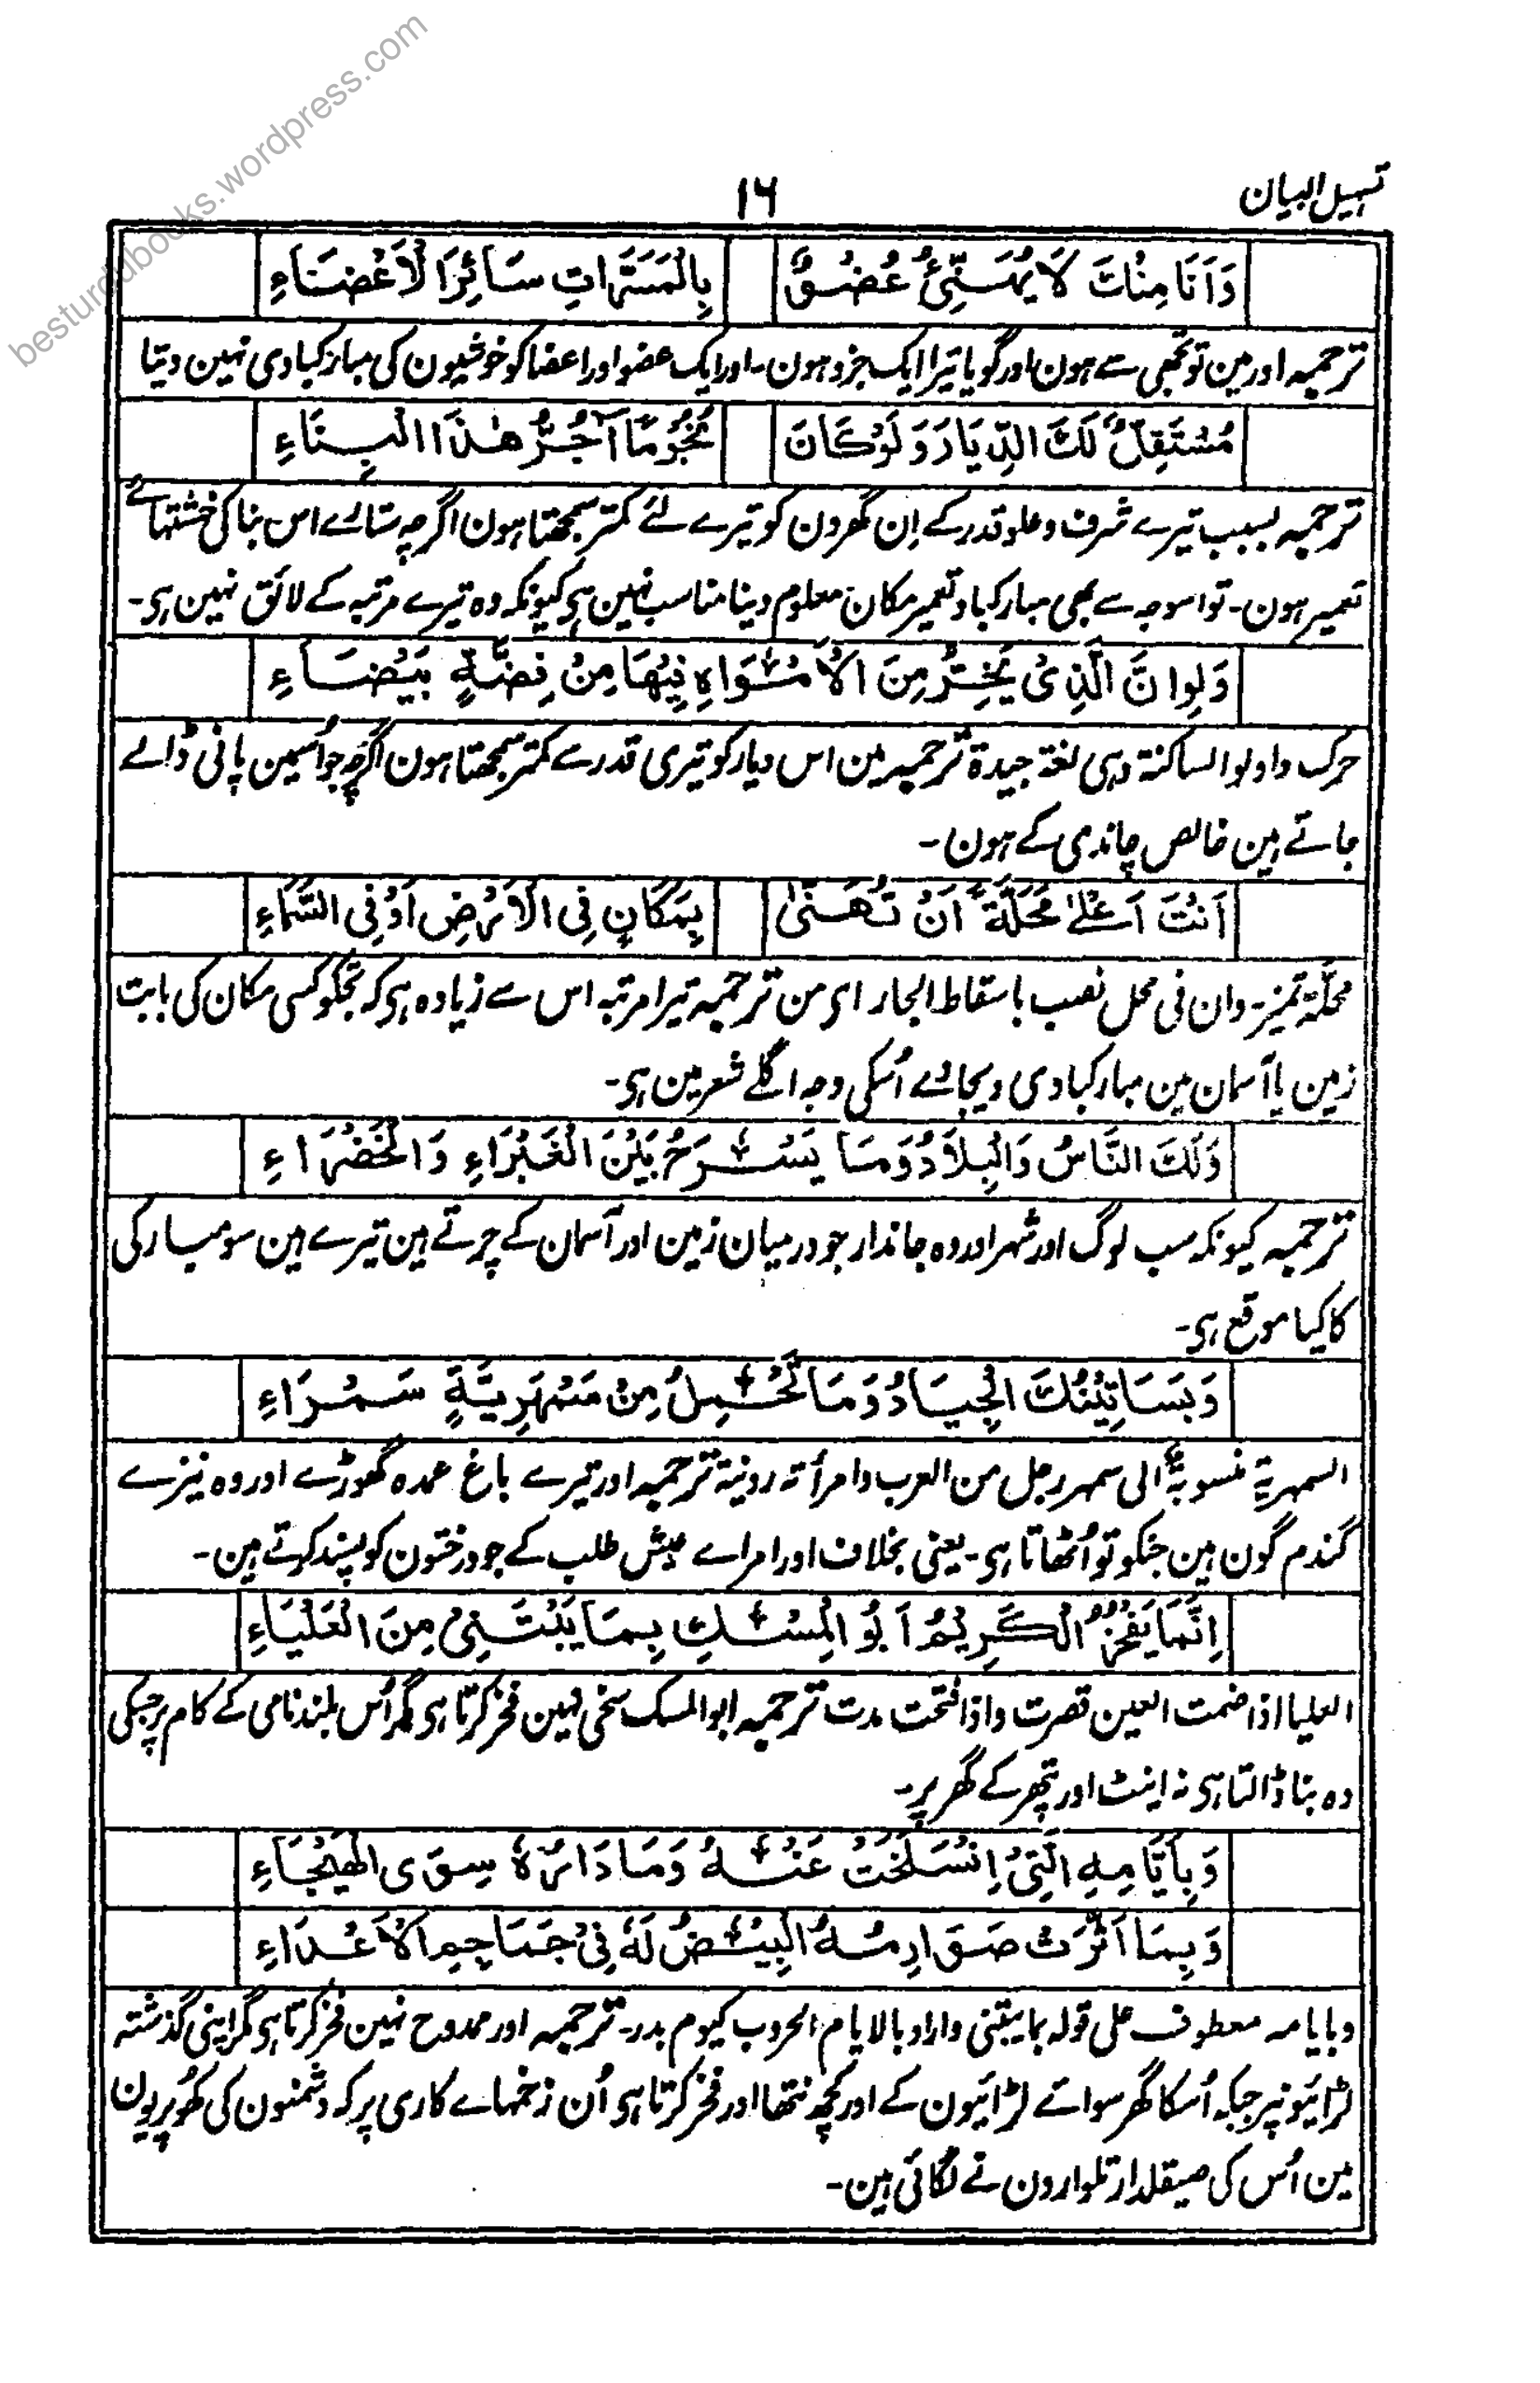 تسہیل البیان
۱۶
وَاَنَا مِنْكَ لَا يُهَنِّئُ عُضْوٌ بِالْمَسَرَّاتِ سَائِرَ الْاَعْضَاءِ
ترجمہ اور مین تو تجھی سے ہون اور گویا تیرا ایک جزو ہون۔ اور ایک عضو اور اعضا کو خوشیون کی مبارکبادی نہین دیتا
مُسْتَقِلٌّ لَكَ الدِّيَارَ وَلَوْ كَانَ نُجُوْمًا آجُرُّ هٰذَا الْبِنَاءِ
ترجمہ بسبب تیرے شرف و علو قدر کے اِن گھرون کو تیرے لئے کمتر سمجھتا ہون اگرچہ ستارے اس بنا کی خشتہائے
تعمیر ہون۔ تو اسوجہ سے بھی مبارکباد تعمیر مکان معلوم دینا مناسب نہین ہی کیونکہ وہ تیرے مرتبہ کے لائق نہین ہی۔
وَلَوِ انَّ الَّذِىْ يَخِرُّ مِنَ الْاَمْوَاهِ فِيْهَا مِنْ فِضَّةٍ بَيْضَاءِ
حرک واو لو الساکنۃ وہی لغۃ جیدۃ ترجمہ مین اس دیار کو تیری قدر سے کمتر سمجھتا ہون اگرچہ جو اُسمین پانی ڈالے
جاتے ہین خالص چاندی کے ہون۔
اَنْتَ اَعْلٰى مَحَلَّةً اَنْ تُهَنّٰى بِمَكَانٍ فِى الْاَرْضِ اَوْ فِى السَّمَاءِ
محلّۃ تمیز۔ وان فی محل نصب باسقاط الجار ای من ترجمہ تیرا مرتبہ اس سے زیادہ ہی کہ تجکو کسی مکان کی بابت
زمین یا آسمان مین مبارکبادی دیجاوے اُسکی وجہ اگلے شعر مین ہی۔
وَلَكَ النَّاسُ وَالْبِلَادُ وَمَا يَسْرَحُ بَيْنَ الْغَبْرَاءِ وَالْخَضْرَاءِ
ترجمہ کیونکہ سب لوگ اور شہر اور وہ جاندار جو درمیان زمین اور آسمان کے چرتے ہین تیرے ہین سو مبارکی
کا کیا موقع ہی۔
وَبَسَاتِيْنُكَ الْجِيَادُ وَمَا تَحْمِلُ مِنْ سَمْهَرِيَّةٍ سَمْرَاءِ
السمہریۃ منسوبۃ الی سمہر رجل من العرب وامرأتہ ردینۃ ترجمہ اور تیرے باغ عمدہ گھوڑے اور وہ نیزے
گندم گون ہین جنکو تو اُٹھاتا ہی۔ یعنی بخلاف اور امراے عیش طلب کے جو درختون کو پسند کرتے ہین۔
اِنَّمَا يَفْخَرُ الْكَرِيْمُ اَبُو الْمِسْكِ بِمَا يَبْتَنِىْ مِنَ الْعَلْيَاءِ
العلیا اذا ضمت العین قصرت واذا فتحت مدت ترجمہ ابو المسک سخی نہین فخر کرتا ہی مگر اُس بلند نامی کے کام پر جسکی
وہ بنا ڈالتا ہی نہ اینٹ اور پتھر کے گھر پر۔
وَبِاَيَّامِهِ الَّتِىْ اِنْسَلَخَتْ عَنْهُ وَمَا دَارُهٗ سِوَى الْهَيْجَاءِ
وَبِمَا اَثَّرَتْ صَوَارِمُهُ الْبِيْضُ لَهٗ فِىْ جَمَاجِمِ الْاَعْدَاءِ
وبایامہ معطوف علی قولہ بما یبتنی واراد بالایام الحروب کیوم بدر۔ ترجمہ اور ممدوح نہین فخر کرتا ہی مگر اپنی گذشتہ
لڑائیونپر جبکہ اُسکا گھر سوائے لڑائیون کے اور کچھ نتھا اور فخر کرتا ہی اُن زخمہاے کاری پر کہ دشمنون کی کھوپریون
مین اُس کی صیقلدار تلوارون نے لگائی ہین۔
besturdubooks.wordpress.com